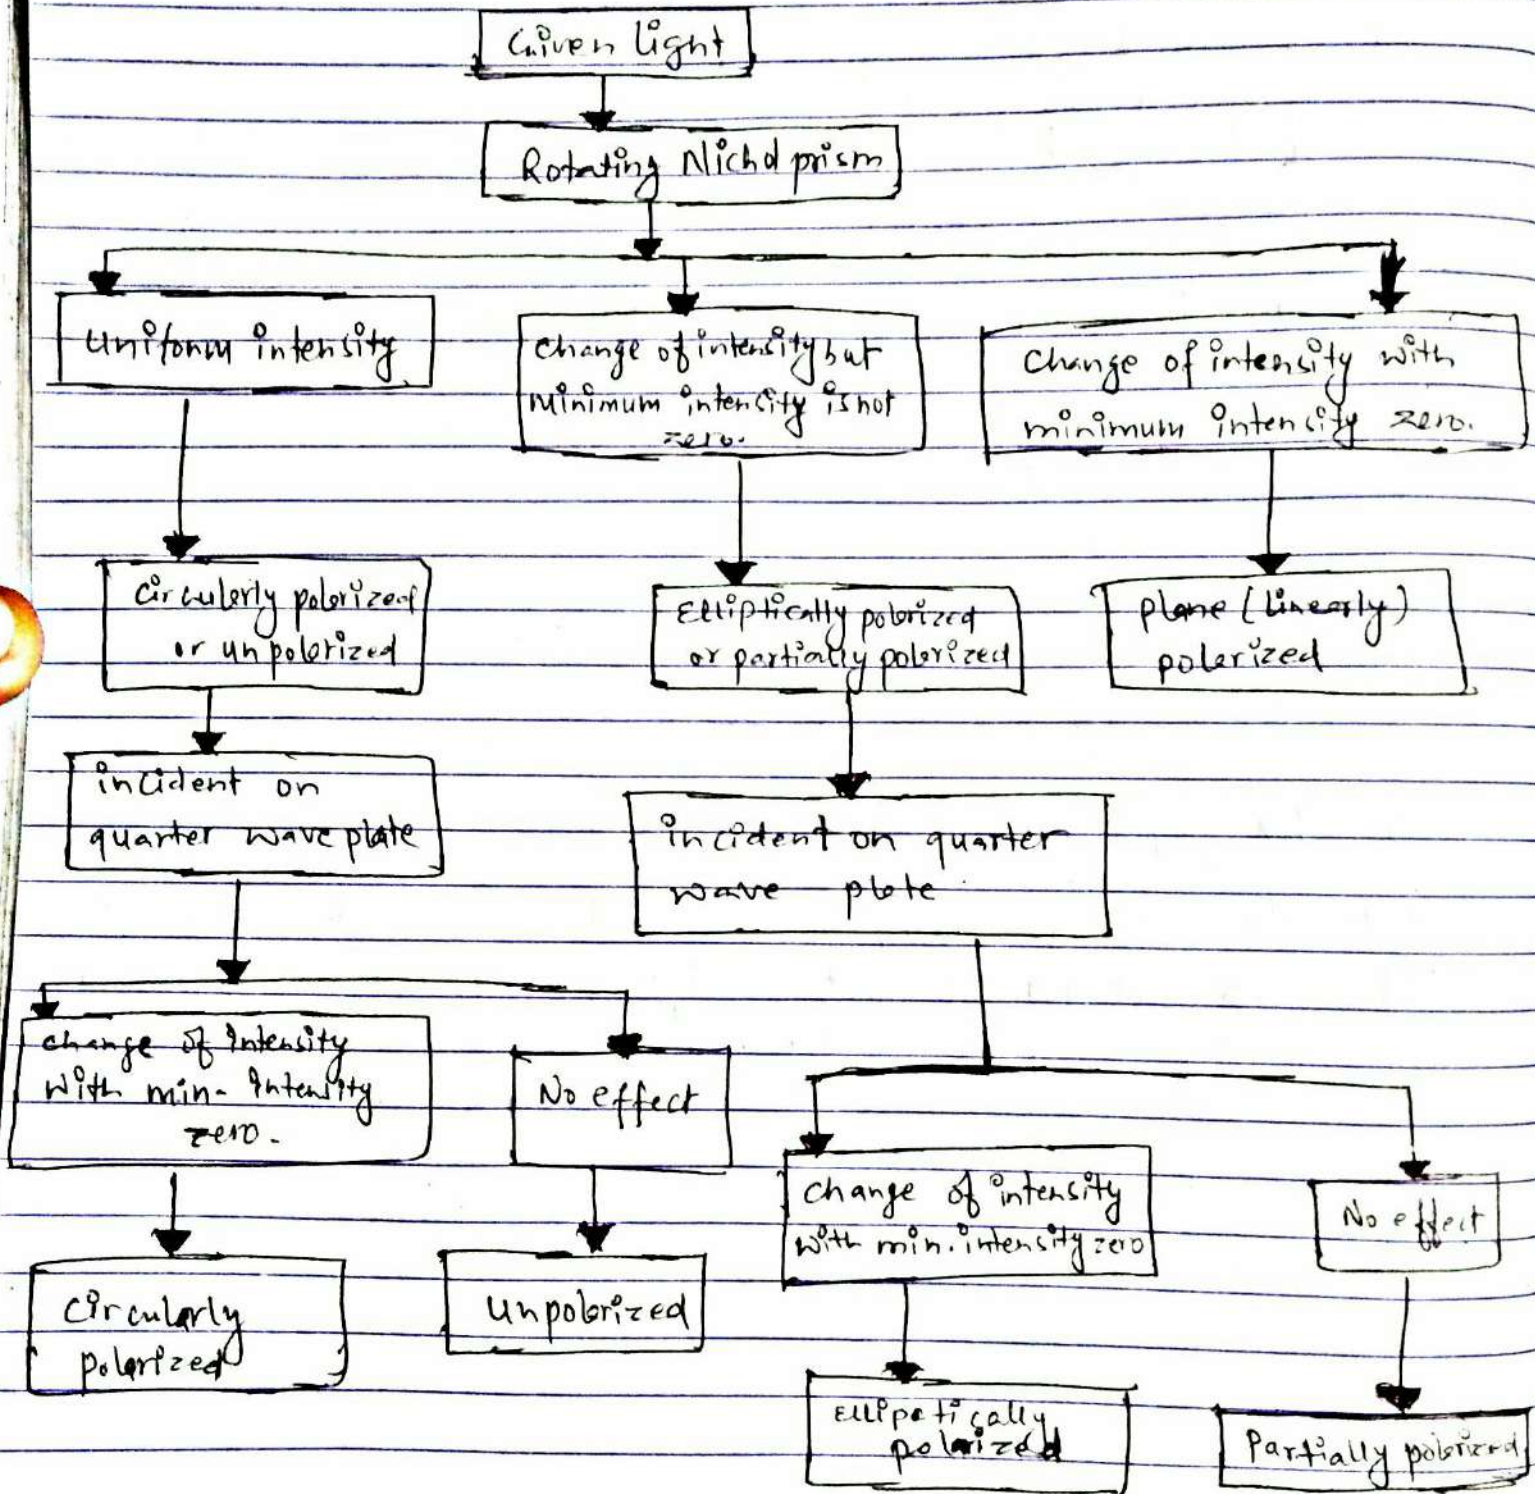 Given light
Rotating Nichol prism
Uniform intensity
change of intensity but
minimum intensity is not
zero.
Change of intensity with
minimum intensity zero.
Circulerly polerized
or unpolerized
Elliptically polerized
or partially polerized
plane (Linearly)
polerized
incident on
quarter wave plate
incident on quarter
wave plate
change of intensity
with min- intensity
zero.
No effect
change of intensity
with min. intensity zero
No effect
Circularly
polarized
unpolorized
Ellipetically
polarized
Partially polorized